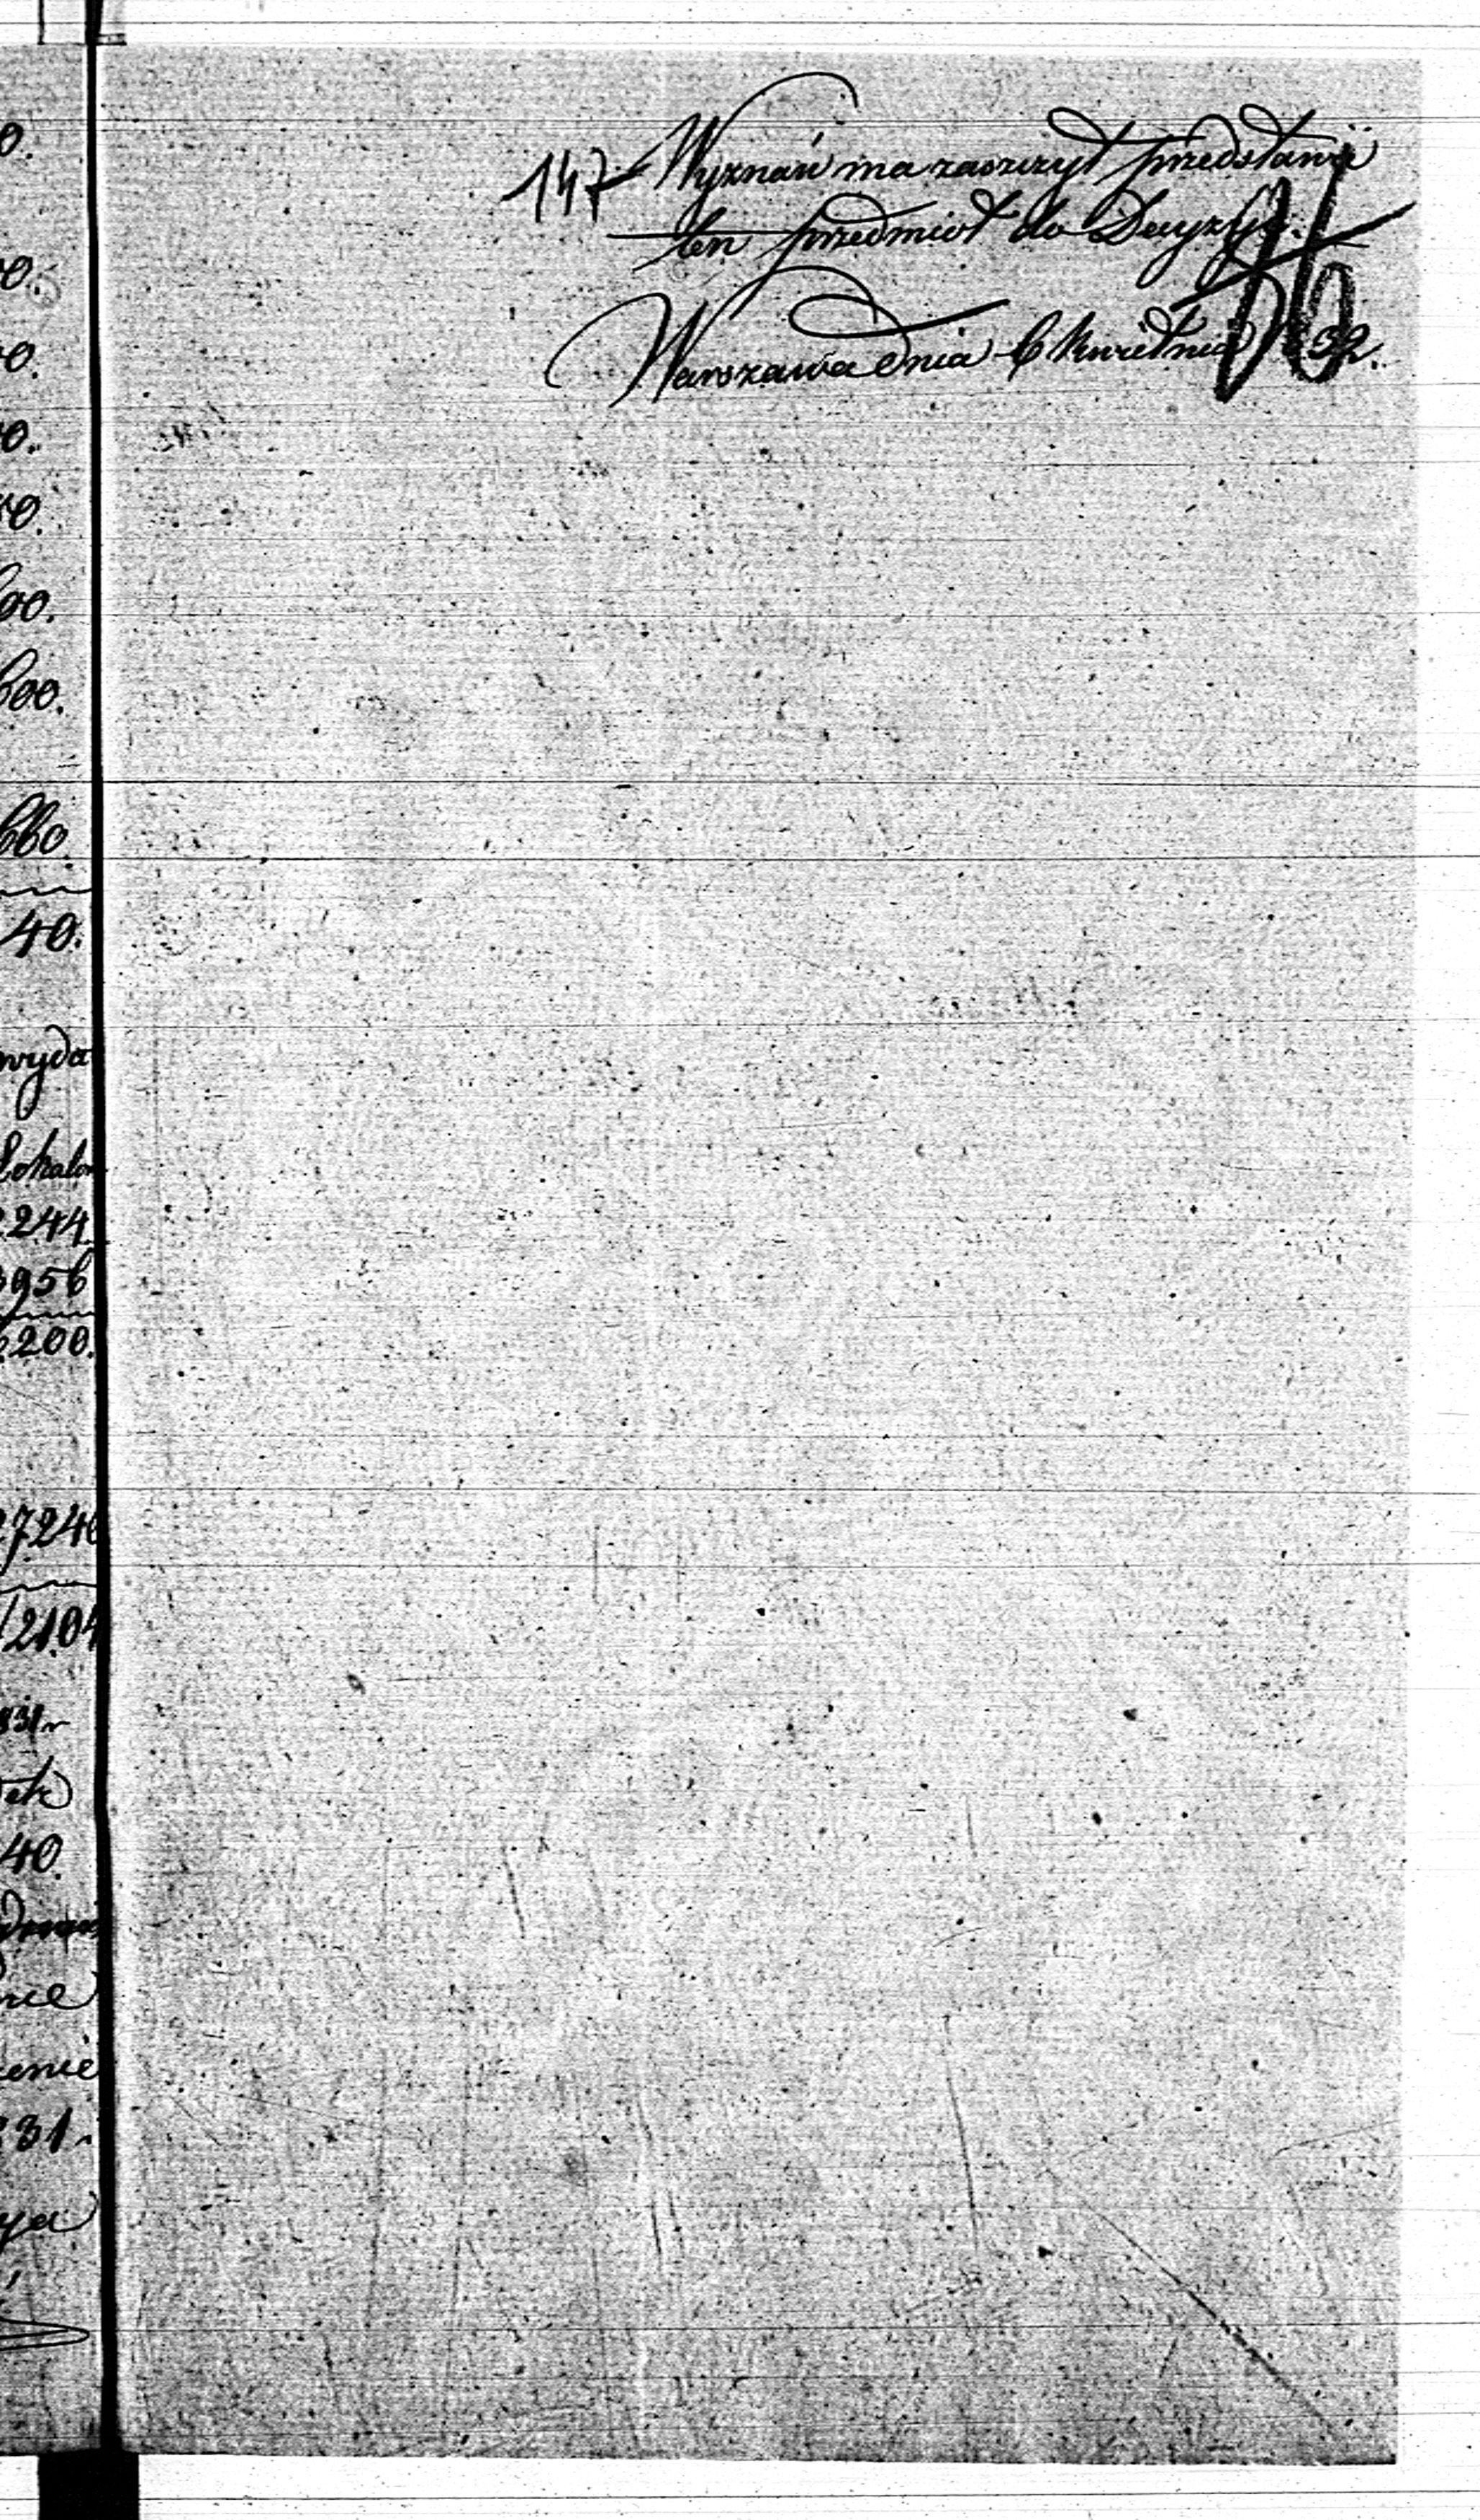 0.
0.
0.
0.
40.
600.
600.
660.
40.
wyda
Lokalo
2244.
3956
6200.
2724
2104
831 r
40.
nie
enie
831 r
ya
147 Wyznań ma zaszczyt przedstawić
ten przedmiot do Decyzyi.
Warszawa dnia 6 Kwietnia 32.
76